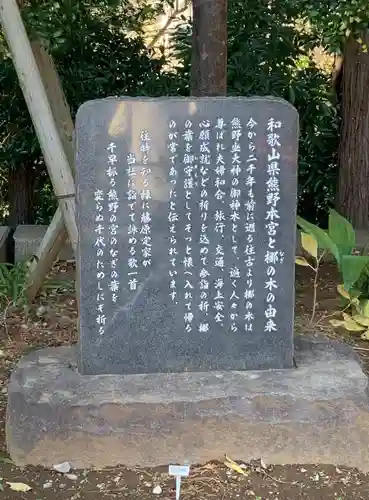 和歌山県熊野本宮と梛の木の由来
なぎ
今から二千年も前に遡る往古より梛の木は
熊野坐大神の御神木として、遍く人々から
尊ばれ夫婦和合、旅行、交通、海上安全、
心願成就などの祈りを込めて参詣の折、梛
の葉を御守護としてそっと懐へ入れて帰る
のが常であったと伝えられています。
往時を知る縁に藤原定家が
当社に詣でて詠める歌一首
千早振る熊野の宮のなぎの葉を
変らぬ千代のためしにぞ祈る